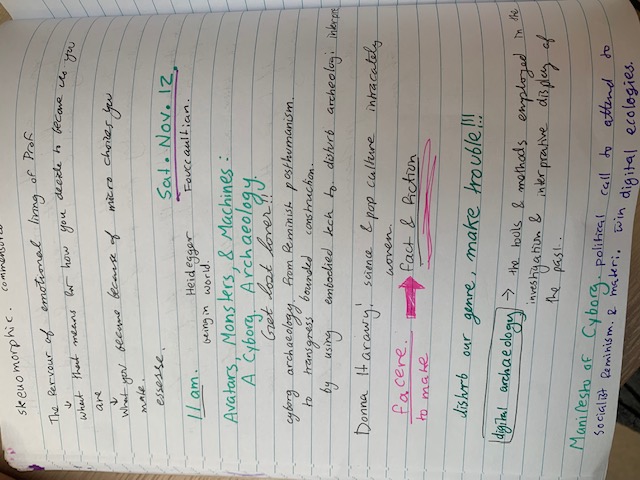 skeuomorphic. commensura
The Fervour of emotional living of Prof
↓
what that means for how you decide to become who you
are
↓
What you become because of micro choices you
make.
essesse.
Sat. Nov. 12
11 am. Heidegger Fouccaultian.
being in world.
Avatars, Monsters, & Machines:
A Cyborg Archaeology
Get lost lover!!
cyborg archaeology from Feminist posthumanism.
to transgress bounded construction.
by using embodied tech to disturb archeologi interpre
Donna Harawy! science & pop culture intracately
woven.
facere. → fact & fiction
to make
disturb our genre, make trouble!!!
digital archaeology → the tools & methods employed in the
investigation & interprative display of
the past..
Manifesto of Cyborg. political call to attend to
socialist feminism. & materi. win digital ecologies.